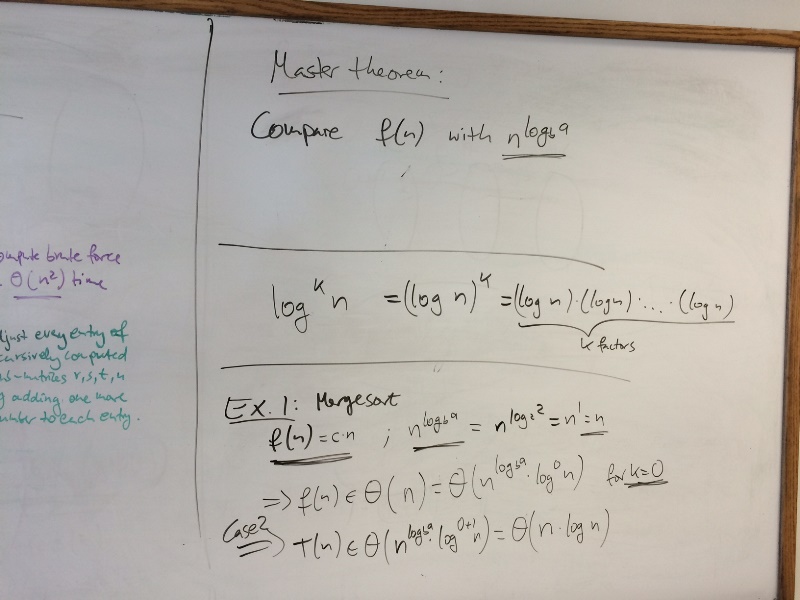 ompute brute force
Θ(n²) time
djust every entry of
cursively computed
ub-matrices r,s,t,u
y adding one more
umber to each entry.
Master theorem:
Compare f(n) with n^(log_b a)
log^k n = (log n)^k = (log n)·(log n)·...·(log n)
k factors
Ex. 1: Mergesort
f(n) = c·n ; n^(log_b a) = n^(log_2 2) = n^1 = n
=> f(n) ∈ Θ(n) = Θ(n^(log_b a) · log^0 n) for k=0
Case 2 => T(n) ∈ Θ(n^(log_b a) · log^(0+1) n) = Θ(n · log n)